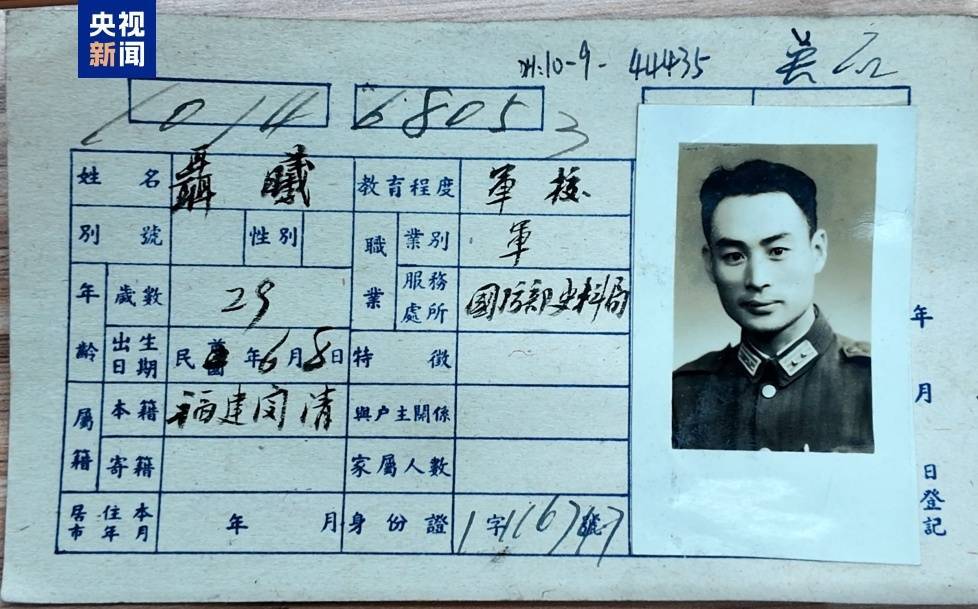 央视
新闻
10-9-44435
1014 68053
姓名 聶曦 教育程度 軍校
別號 性別 職業 業別 軍
年齡 歲數 29 服務處所 國防部史料局
出生日期 民國 年6月8日 特徵
屬籍 本籍 福建闽清 與户主關係
寄籍 家屬人數
居住本市年月 年 月 身份證 字 號
年 月 日登記